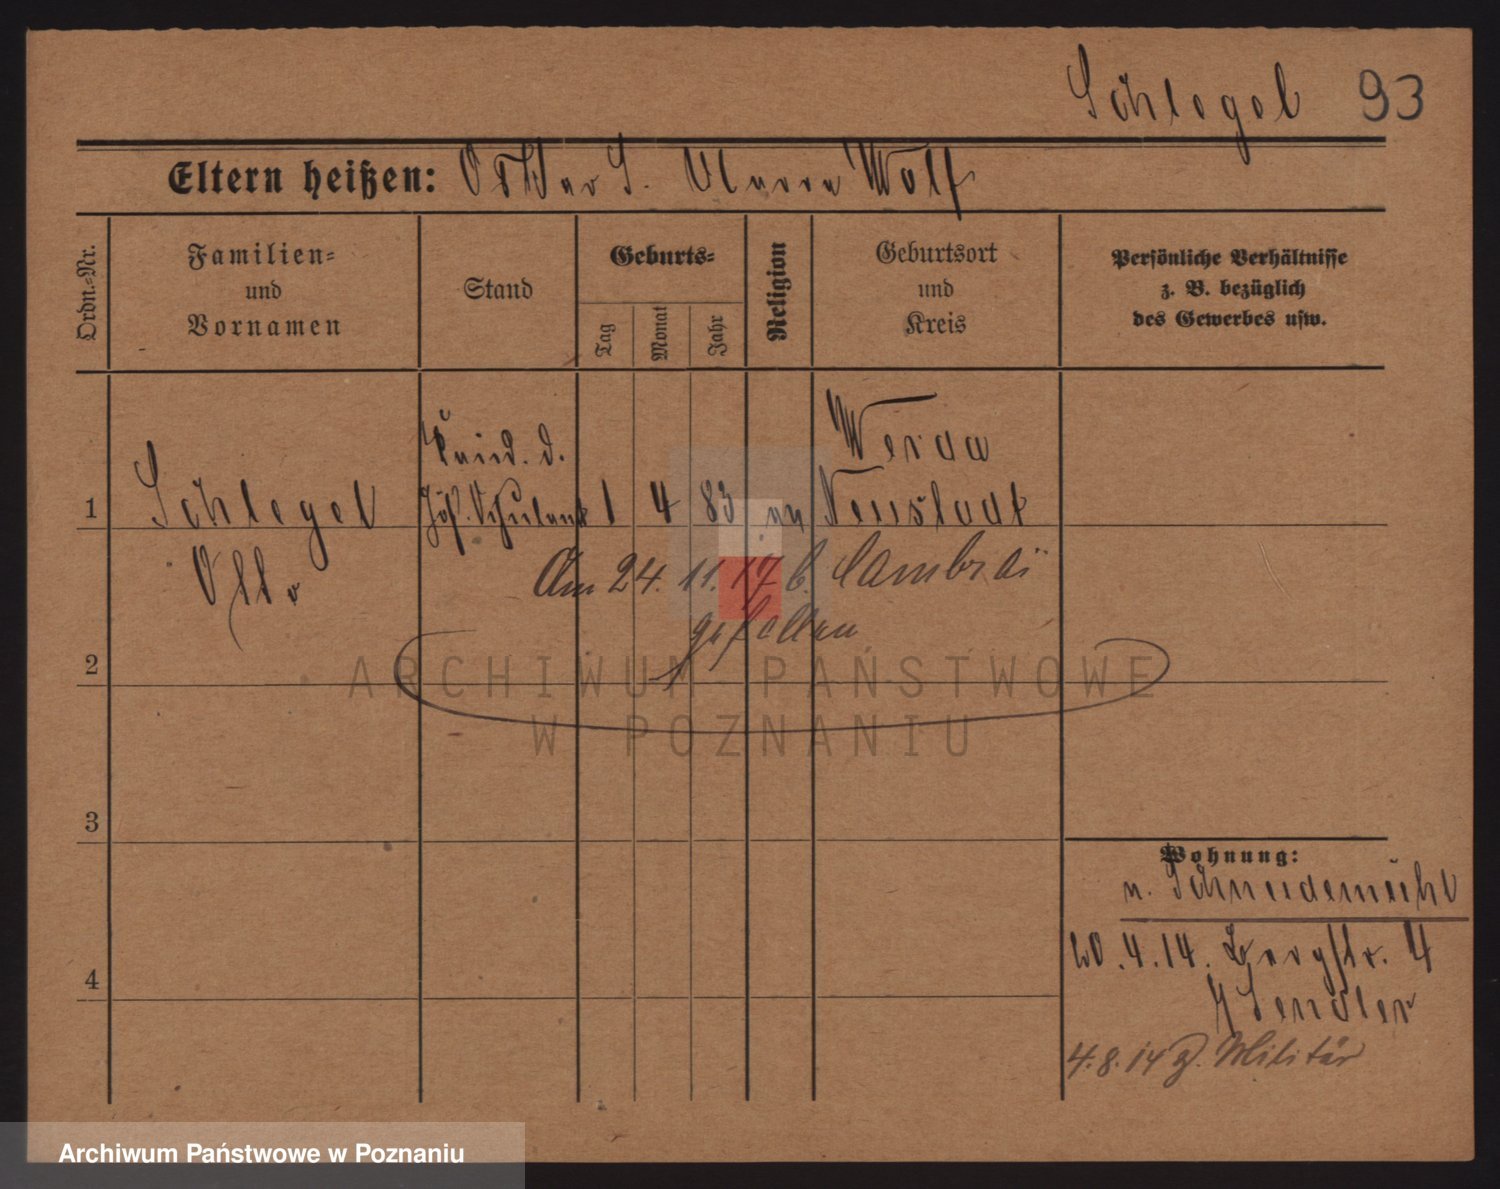 Schlegel 93
Eltern heißen: Oskar S. Wolf
Ordn.-Nr.
Familien-
und
Vornamen
Stand
Geburts-
Tag
Monat
Jahr
Religion
Geburtsort
und
Kreis
Persönliche Verhältnisse
z. B. bezüglich
des Gewerbes usw.
d.
Werda
1 Schlegel 1 4 83 Neustadt
Otto
Am 24. 11. 17 b. Cambrai
gefallen
2
3
4
Wohnung:
n. Schneidemühl
4.14. Bergstr. 4
Sendler
4.8.14 z. Militär
ARCHIWUM PAŃSTWOWE
W POZNANIU
Archiwum Państwowe w Poznaniu